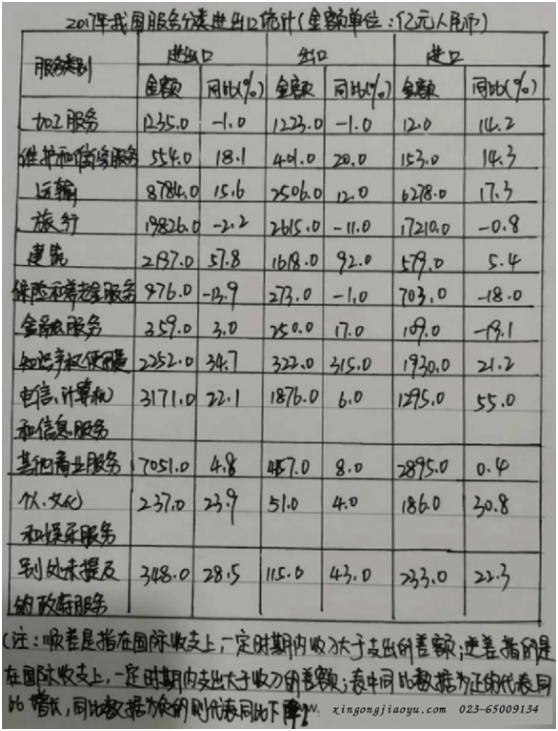 2017年我国服务分类进出口统计(金额单位:亿元人民币)
服务类别 进出口 出口 进口
金额 同比(%) 金额 同比(%) 金额 同比(%)
加工服务 1235.0 -1.0 1223.0 -1.0 12.0 14.2
维护和维修服务 554.0 18.1 401.0 20.0 153.0 14.3
运输 8784.0 15.6 2506.0 12.0 6278.0 17.3
旅行 19826.0 -2.2 2615.0 -11.0 17210.0 -0.8
建筑 2197.0 57.8 1618.0 92.0 579.0 5.4
保险和养老金服务 976.0 -13.9 273.0 -1.0 703.0 -18.0
金融服务 359.0 3.0 250.0 17.0 109.0 -19.1
知识产权使用费 2252.0 34.7 322.0 315.0 1930.0 21.2
电信、计算机 3171.0 22.1 1876.0 6.0 1295.0 55.0
和信息服务
其他商业服务 7051.0 4.8 4157.0 8.0 2895.0 0.4
个人、文化 237.0 23.9 51.0 4.0 186.0 30.8
和娱乐服务
别处未提及 348.0 28.5 115.0 43.0 233.0 22.3
的政府服务
(注:顺差是指在国际收支上,一定时期内收入大于支出的差额;逆差指的是
在国际收支上,一定时期内支出大于收入的差额;表中同比数据为正的代表同
比增长,同比数据为负的则代表同比下降)
www.xingongjiaoyu.com 023-65009134